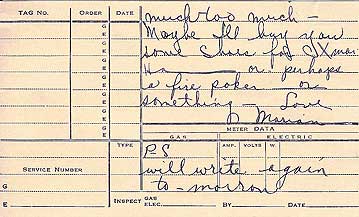 TAG No. ORDER DATE
G E
G E
G E
G E
G E
much too much –
Maybe I'll buy you
some shoes for Xmas
Ha or perhaps
a fire poker or
something – Love
Marian
METER DATA
GAS ELECTRIC
TYPE AMP. VOLTS W.
PS
will write again
to-morrow
SERVICE NUMBER
G
E
INSPECT GAS
ELEC. BY DATE